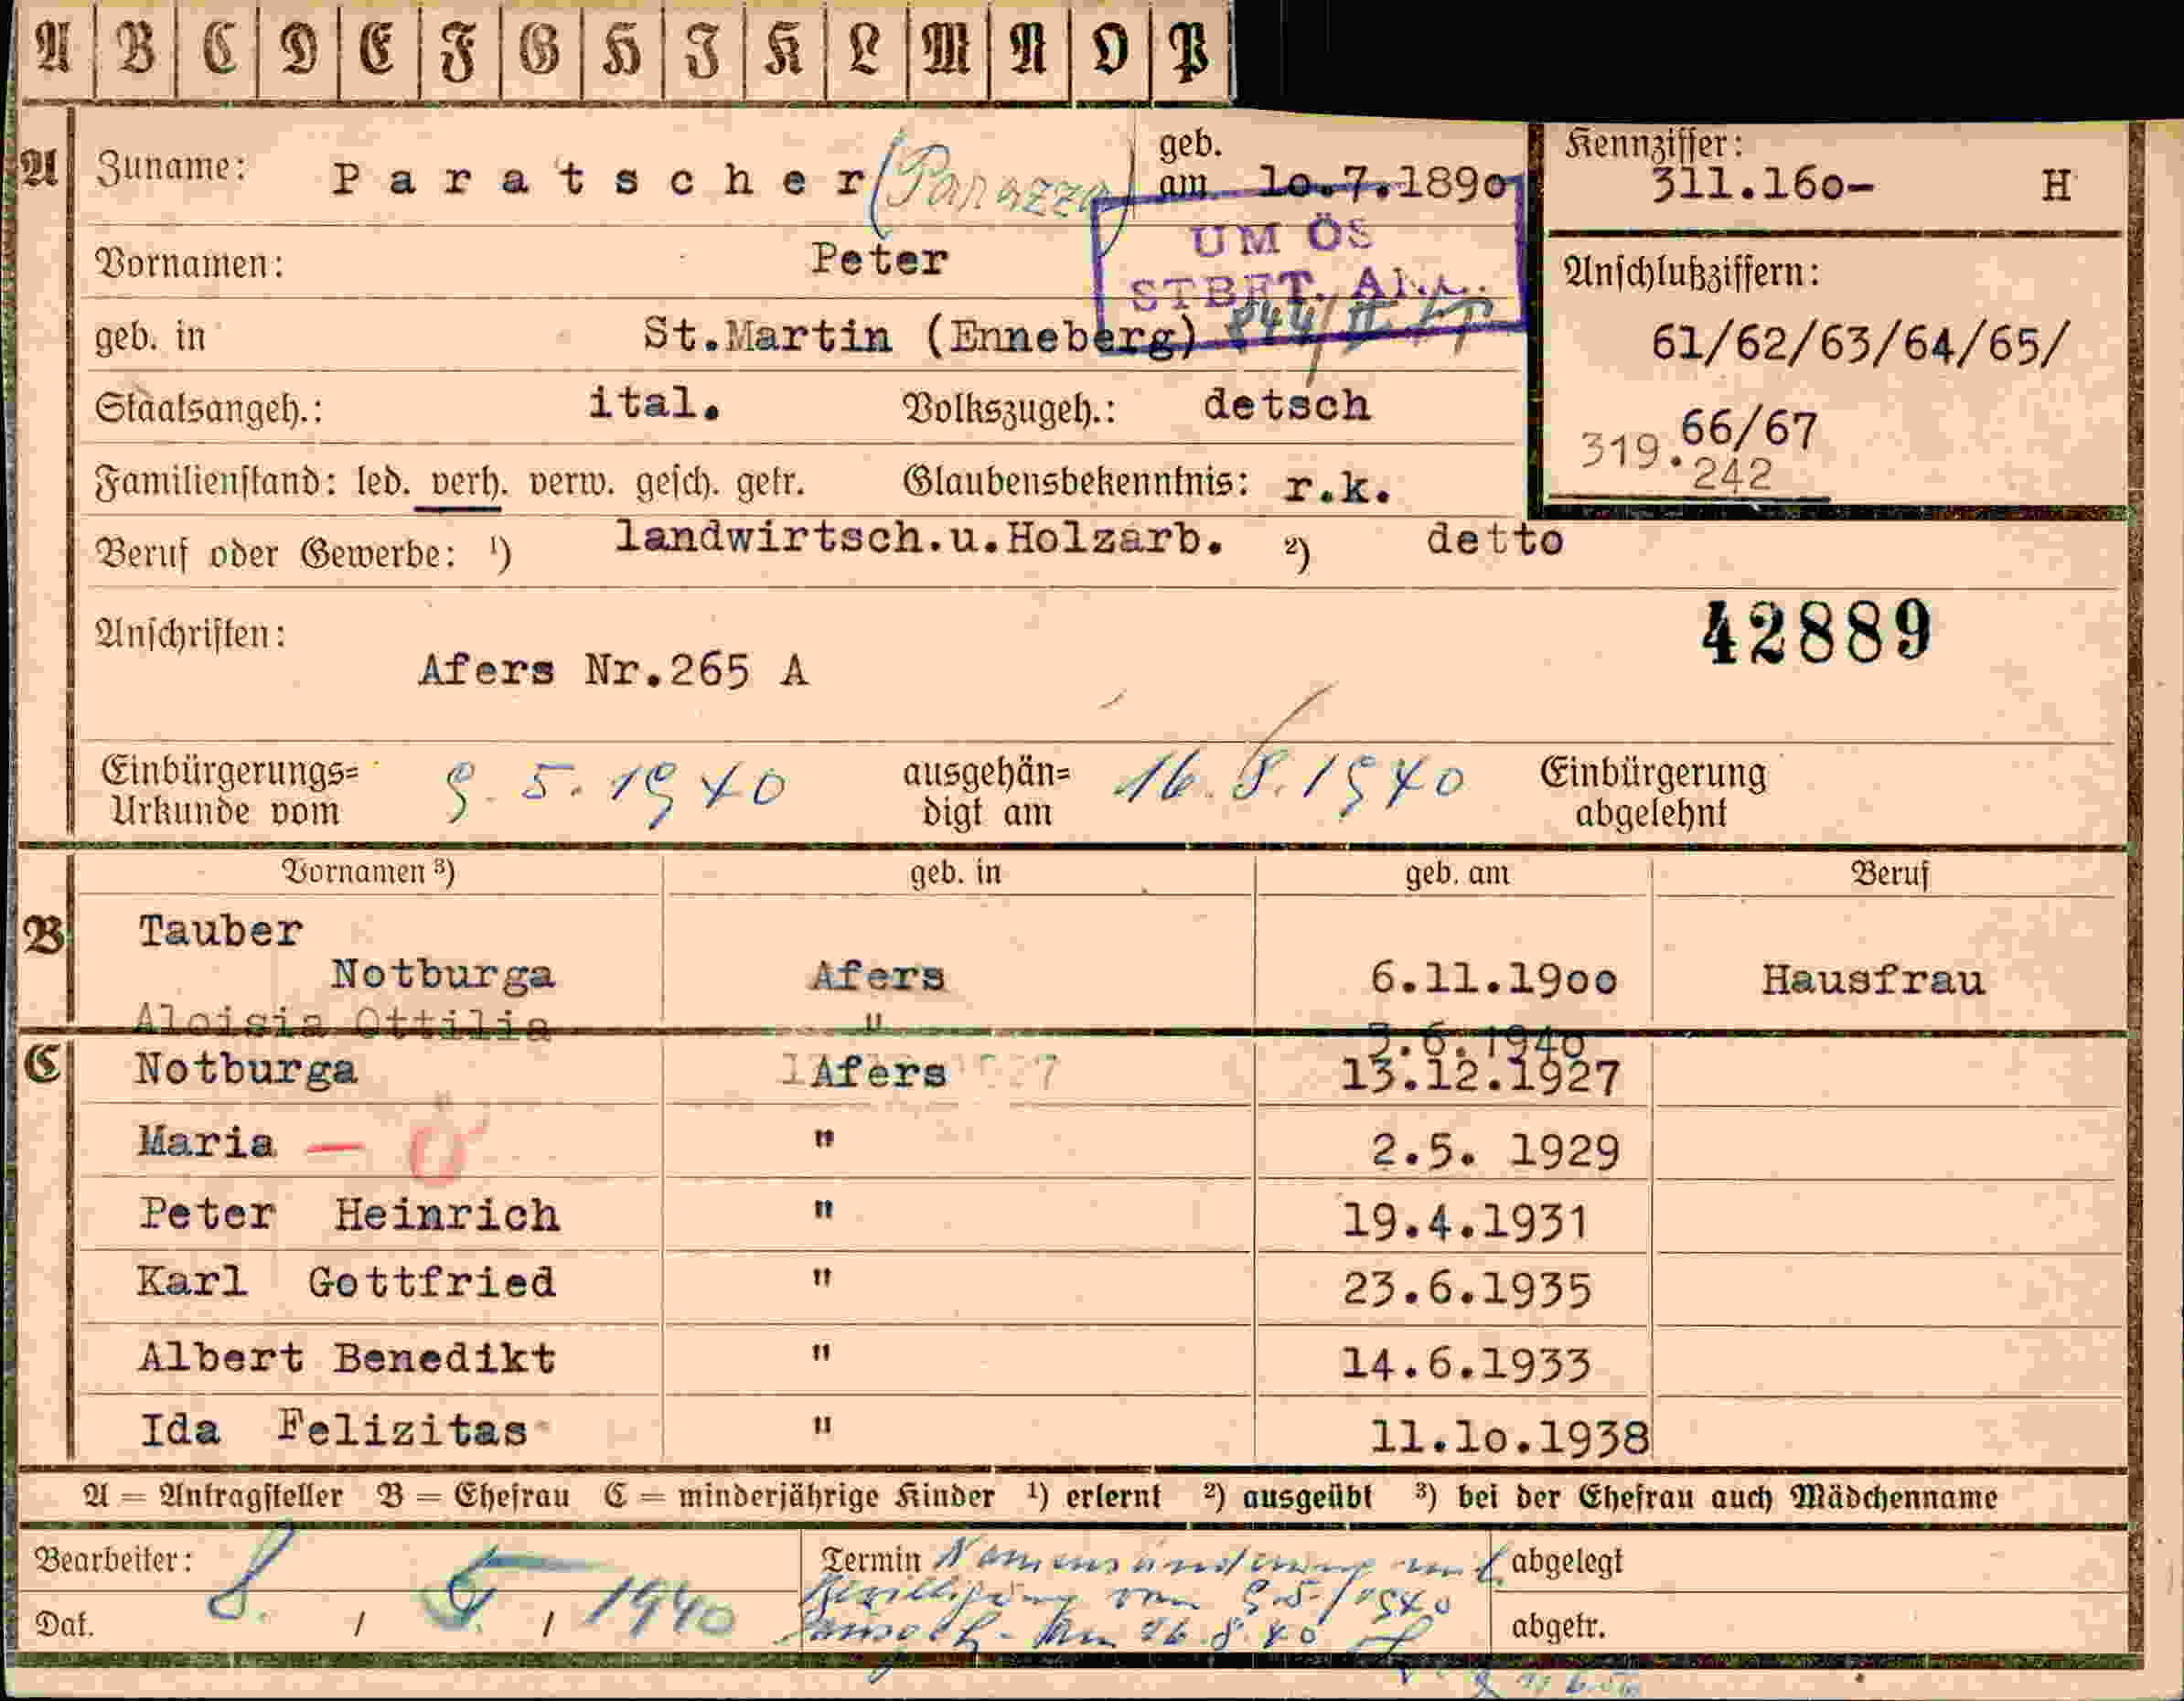 A B C D E F G H I K L M N O P
A Zuname: Paratscher (Parazza) geb. am 10.7.1890 Kennziffer: 311.16o- H
UM ÖS
Vornamen: Peter STBET. Anschlußziffern:
geb. in St.Martin (Enneberg) 61/62/63/64/65/
Staatsangeh.: ital. Volkszugeh.: detsch 66/67
319.242
Familienstand: led. verh. verw. gesch. getr. Glaubensbekenntnis: r.k.
Beruf oder Gewerbe: ¹) landwirtsch.u.Holzarb. ²) detto
Anschriften: 42889
Afers Nr.265 A
Einbürgerungs= Urkunde vom 9.5.1940 ausgehän= digt am 16.8.1940 Einbürgerung abgelehnt
Vornamen ³) geb. in geb. am Beruf
B Tauber
Notburga Afers 6.11.19oo Hausfrau
Aloisia Ottilia " 3.6.1940
C Notburga Afers 13.12.1927
Maria — " 2.5. 1929
Peter Heinrich " 19.4.1931
Karl Gottfried " 23.6.1935
Albert Benedikt " 14.6.1933
Ida Felizitas " 11.1o.1938
A = Antragsteller B = Ehefrau C = minderjährige Kinder ¹) erlernt ²) ausgeübt ³) bei der Ehefrau auch Mädchenname
Bearbeiter: Termin Namensänderung abgelegt
vom 9.5.1940
Dat. 8. / 5. / 1940 am 26.8.40 abgetr.